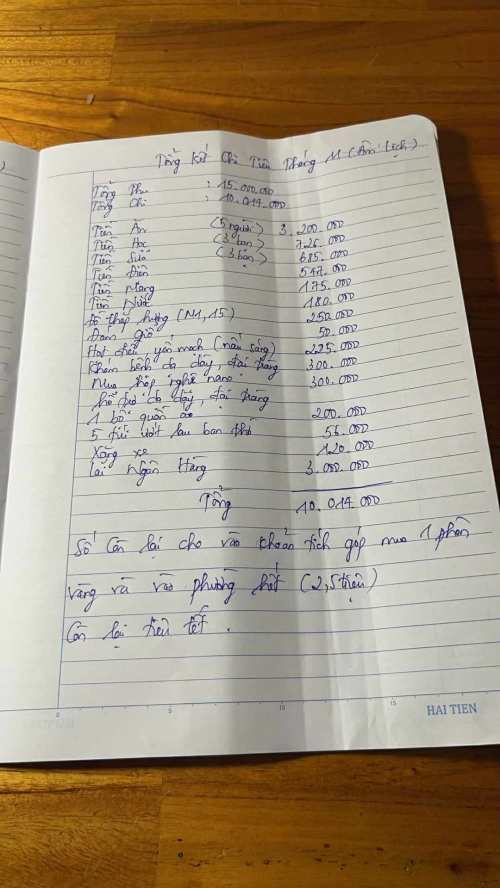 Tổng Kết Chi Tiêu Tháng 11 (Âm lịch)
Tổng Thu : 15.000.000
Tổng Chi : 10.014.000
Tiền Ăn (5 người) 3.200.000
Tiền Học (3 bạn) 726.000
Tiền Sữa (3 bạn) 685.000
Tiền Điện 547.000
Tiền Mạng 175.000
Tiền Nước 180.000
Đồ thắp hương (M1, 15) 250.000
Đám giỗ 50.000
Hạt điều yến mạch (nấu sáng) 225.000
Khám bệnh dạ dày, đại tràng 300.000
Mua hộp nghệ nano 300.000
hỗ trợ dạ dày, đại tràng
1 bộ quần áo 200.000
5 túi ướt lau ban thờ 56.000
Xăng xe 120.000
Lãi Ngân Hàng 3.000.000
Tổng 10.014.000
Số còn lại cho vào khoản tích góp mua 1 phân
vàng và vào phường hết (2,5 triệu)
Còn lại tiêu tết.
0 5 10 15
HAI TIEN